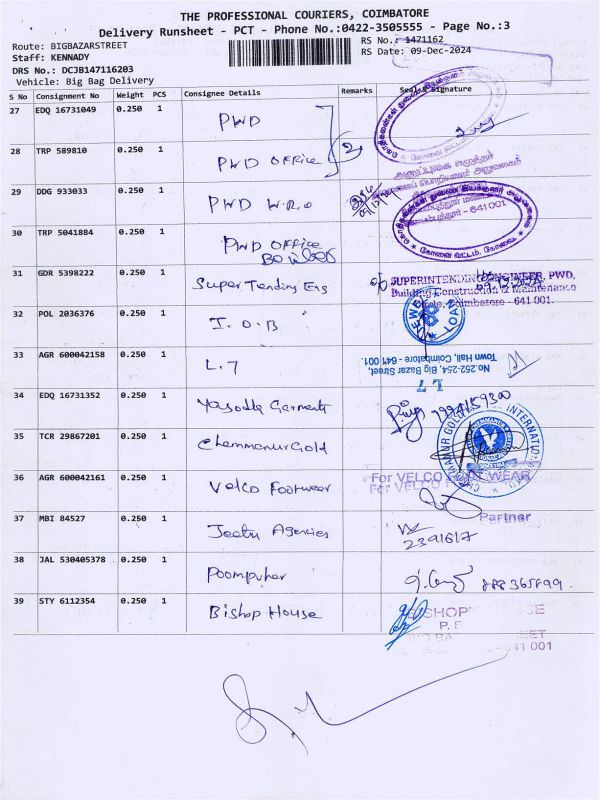 THE PROFESSIONAL COURIERS, COIMBATORE
Delivery Runsheet - PCT - Phone No.:0422-3505555 - Page No.:3
Route: BIGBAZARSTREET
RS No.: 1471162
Staff: KENNADY
RS Date: 09-Dec-2024
DRS No.: DCJB147116203
Vehicle: Big Bag Delivery
S No Consignment No Weight PCS Consignee Details Remarks Seal & Signature
27 EDQ 16731049 0.250 1 PWD
28 TRP 589810 0.250 1 PWD OFFICE 2
29 DDG 933033 0.250 1 PWD W.R.O
641 001
கோவை வட்டம், கோவை.
30 TRP 5041884 0.250 1 PWD OFFICE
31 GDR 5398222 0.250 1 SuperTending Eng
SUPERINTENDING ENGINEER, PWD,
Building Construction & Maintenance
Circle, Coimbatore - 641 001.
32 POL 2036376 0.250 1 I.O.B
LOAN
33 AGR 600042158 0.250 1 L.7
No.252-254, Big Bazar Street,
Town Hall, Coimbatore - 641 001.
L 7
34 EDQ 16731352 0.250 1 Yasodha Garments
35 TCR 29867201 0.250 1 Chemmanur Gold
CHEMMANUR GOLD INTERNATIONAL
36 AGR 600042161 0.250 1 Velco Footwear
For VELCO FOOT WEAR
For VELCO
Partner
37 MBI 84527 0.250 1 Jeetu Agencies
2391617
38 JAL 530405378 0.250 1 Poompuhar
39 STY 6112354 0.250 1 Bishop House
BISHOP'S HOUSE
641 001